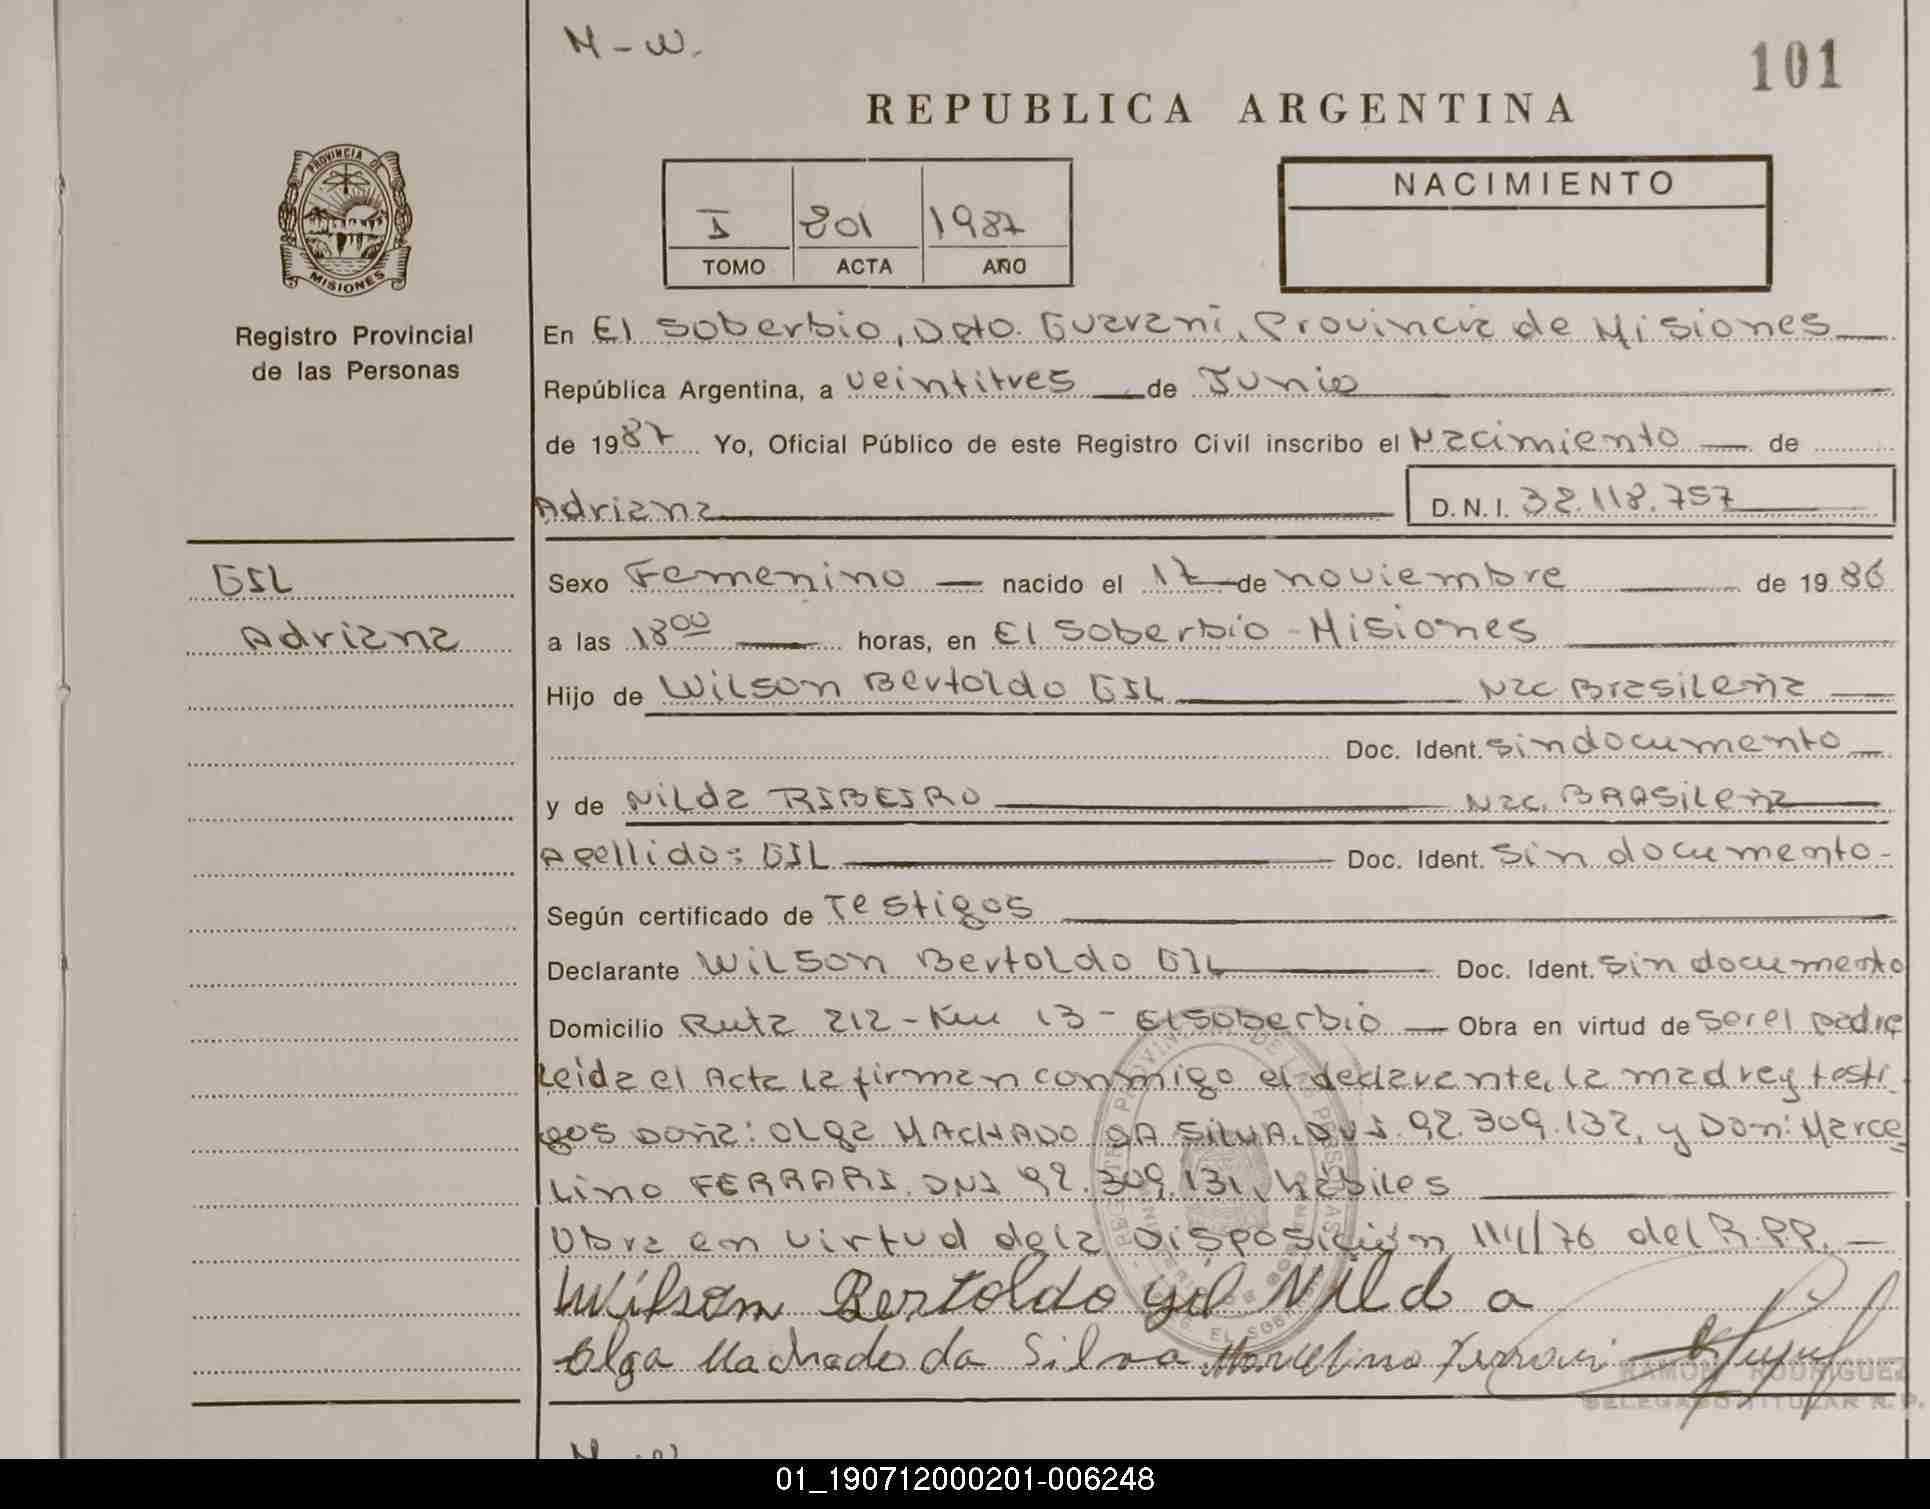 M-W.
101
REPUBLICA ARGENTINA
PROVINCIA DE
MISIONES
Registro Provincial
de las Personas
I 201 1987
TOMO ACTA AÑO
NACIMIENTO
En El Soberbio, Dpto. Guaraní, Provincia de Misiones
República Argentina, a veintitres de Junio
de 1987 Yo, Oficial Público de este Registro Civil inscribo el Nacimiento de
Adriana D.N.I. 32.118.757
GIL
Adriana
Sexo Femenino nacido el 17 de noviembre de 1986
a las 18 00 horas, en El Soberbio - Misiones
Hijo de Wilson Bertoldo GIL Nac Brasileña
Doc. Ident. sin documento
y de Nilda RIBEIRO Nac. BRASileña
Apellido: GIL Doc. Ident. sin documento-
Según certificado de Testigos
Declarante Wilson Bertoldo GIL Doc. Ident. sin documento
Domicilio Ruta 212 - Km 13 - El Soberbio Obra en virtud de ser el padre
Leída el Acta la firman conmigo el declarante, la madre y testi-
gos Doña: Olga MACHADO DA SILVA, DNI. 92.309.132, y Don: Marce
Lino FERRARI. DNI 92.309.131, hábiles
Obra en virtud de la Disposición 114/76 del R.P.P.
Wilson Bertoldo gil Nilda
Olga Machado da Silva Marcelino Ferrari
RAMON RODRIGUEZ
DELEGADO TITULAR R.P.
01_190712000201-006248